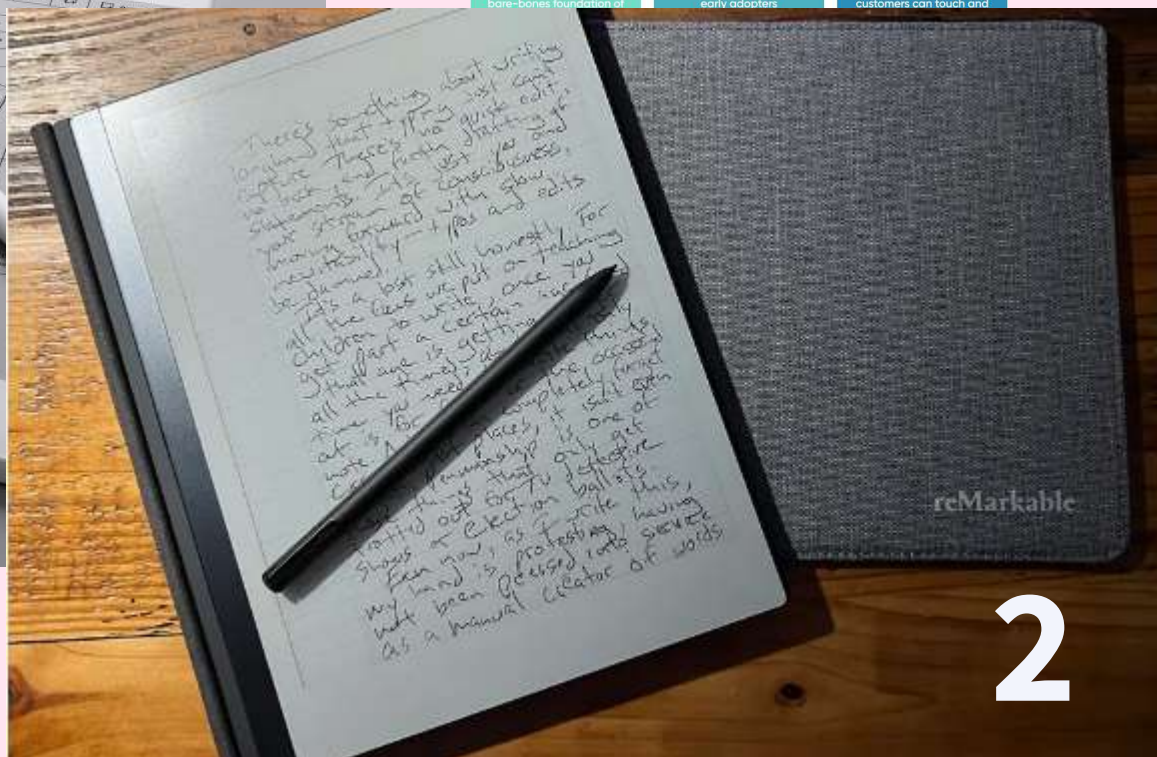 bare-bones foundation of
early adopters
customers can touch and
There's something about writing
longhand that typing just can't
capture. There's no quick edit,
no back and forth jilting of
statements. It's just you and
your stream of consciousness,
moving forward with slow
inevitability — typos and edits
be damned.
It's a lost still honestly. For
all the lens we put on teaching
children to write, once you
get past a certain
that one is getting
all the time,
time you need
out is for
note. A
completely forget
places, it isn't even
Penmanship is one of
things that only get
trotted out for TV detective
shows or election ballots.
Even now, as I write this,
my hand is protesting, having
not been pressed into service
as a manual creator of words
reMarkable
2